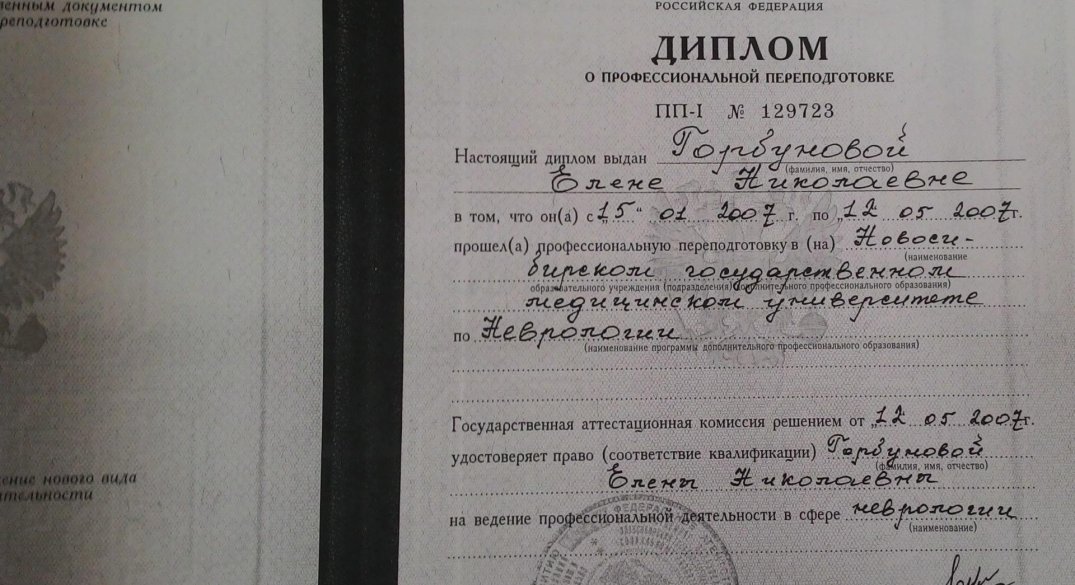 венным документом
реподготовке
ение нового вида
ятельности
РОССИЙСКАЯ ФЕДЕРАЦИЯ
ДИПЛОМ
О ПРОФЕССИОНАЛЬНОЙ ПЕРЕПОДГОТОВКЕ
ПП-I № 129723
Настоящий диплом выдан Горбуновой
(фамилия, имя, отчество)
Елене Николаевне
в том, что он(а) с „15“ 01 2007 г. по „12 05 2007г.
прошел(а) профессиональную переподготовку в (на) Новоси-
(наименование
бирском государственном
образовательного учреждения (подразделения) дополнительного профессионального образования)
медицинском университете
по Неврологии
(наименование программы дополнительного профессионального образования)
Государственная аттестационная комиссия решением от „12 05 2007г.
удостоверяет право (соответствие квалификации) Горбуновой
(фамилия, имя, отчество)
Елены Николаевны
на ведение профессиональной деятельности в сфере неврологии
(наименование)